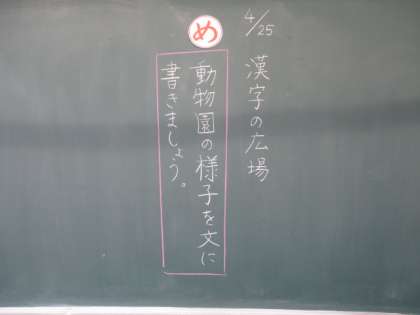 4/25
漢字の広場
め
動物園の様子を文に
書きましょう。